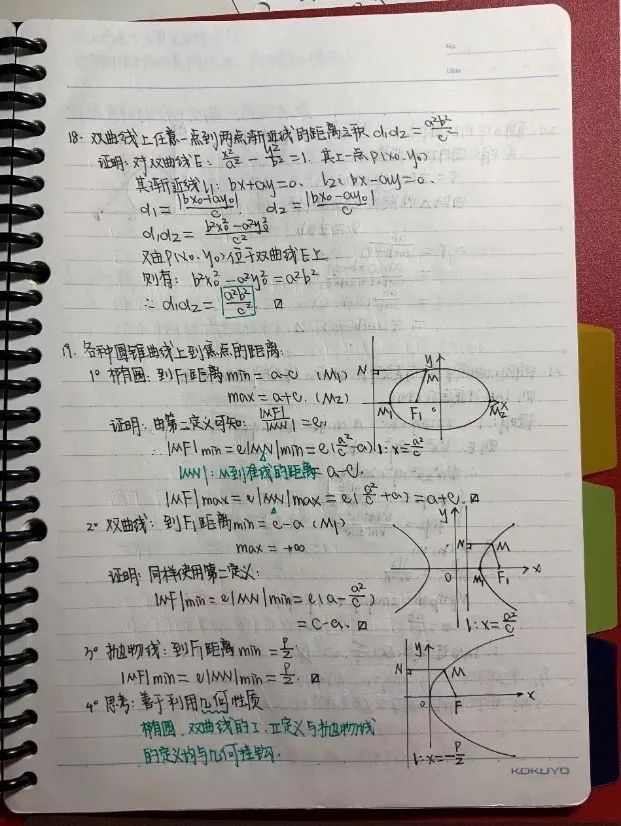 No.
Date
18. 双曲线上任意一点到两点渐近线的距离之积 d₁d₂ = a²b²/c²
证明: 对双曲线E: x²/a² - y²/b² = 1. 其上一点P(x₀,y₀)
其渐近线l₁: bx+ay=0. l₂: bx-ay=0.
d₁ = |bx₀+ay₀|/c d₂ = |bx₀-ay₀|/c
d₁d₂ = b²x₀²-a²y₀²/c²
又由P(x₀,y₀)位于双曲线E上
则有: b²x₀²-a²y₀² = a²b²
∴ d₁d₂ = a²b²/c²
19. 各种圆锥曲线上到焦点的距离:
1° 椭圆: 到F₁距离min = a-c (M₁)
max = a+c. (M₂)
证明: 由第二定义可知: |MF|/|MN| = e.
∴ |MF|min = e|MN|min = e(a²/c - a)
|MN|: M到准线的距离 = a-c.
|MF|max = e|MN|max = e(a²/c + a) = a+c.
N y M
M₁ F₁ o M₂ x
l: x = a²/c
2° 双曲线: 到F₁距离min = c-a (M₁)
max = +∞
证明: 同样使用第二定义:
|MF|min = e|MN|min = e(a - a²/c)
= c-a.
y
N M
o M₁ F₁ x
l: x = a²/c
3° 抛物线: 到F₁距离min = p/2
|MF|min = e|MN|min = p/2.
4° 思考: 善于利用几何性质
椭圆、双曲线的I、II定义与抛物线
的定义均与几何挂钩.
y
N M
o F x
l: x = -p/2
KOKUYO